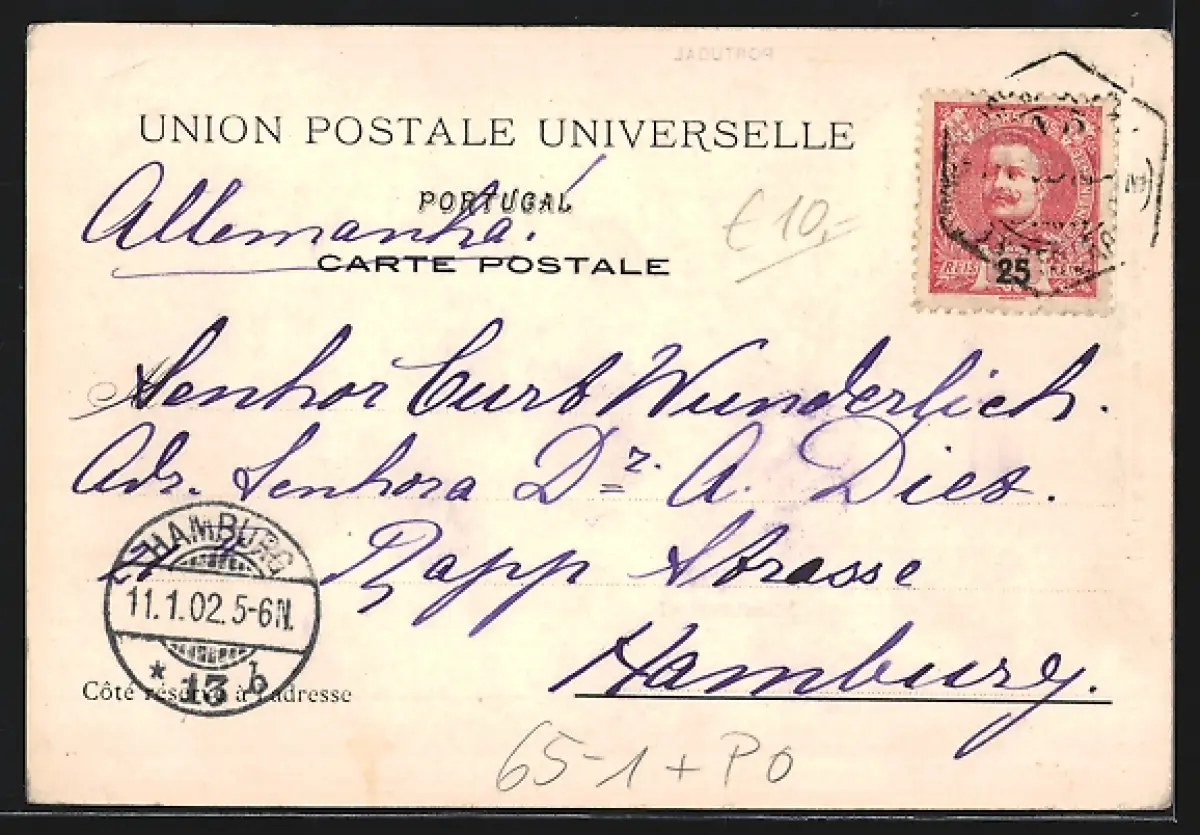 UNION POSTALE UNIVERSELLE
PORTUGAL
Allemanha!
CARTE POSTALE
€ 10,-
REIS 25 REIS
Senhor Curt Wunderlich.
Adr. Senhora Dr. A. Diez.
Rapp Strasse
Hamburg.
HAMBURG
11.1.02.5-6N.
* 13 b
Côté réservé à l'adresse
65-1+PO